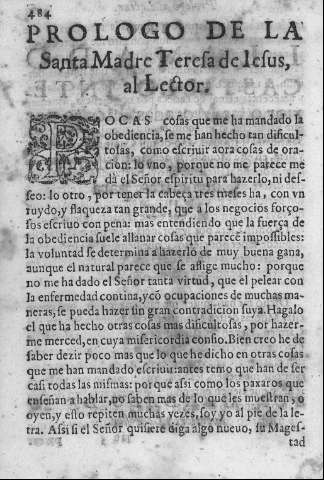 484
PROLOGO DE LA
Santa Madre Teresa de Iesus,
al Lector.
POCAS cosas que me ha mandado la
obediencia, se me han hecho tan dificul-
tosas, como escriuir aora cosas de ora-
cion: lo vno, porque no me parece me
dà el Señor espiritu para hazerlo, ni des-
seo: lo otro, por tener la cabeça tres meses ha, con vn
ruydo, y flaqueza tan grande, que a los negocios forço-
sos escriuo con pena: mas entendiendo que la fuerça de
la obediencia suele allanar cosas que parecē impossibles:
la voluntad se determina a hazerlo de muy buena gana,
aunque el natural parece que se aflige mucho: porque
no me ha dado el Señor tanta virtud, que el pelear con
la enfermedad contina, y cō ocupaciones de muchas ma-
neras, se pueda hazer sin gran contradicion suya. Hagalo
el que ha hecho otras cosas mas dificultosas, por hazer-
me merced, en cuya misericordia confio. Bien creo he de
saber dezir poco mas que lo que he dicho en otras cosas
que me han mandado escriuir: antes temo que han de ser
casi todas las mismas: porque assi como los paxaros que
enseñan a hablar, no saben mas de lo que les muestran, ò
oyen, y esto repiten muchas vezes, soy yo al pie de la le-
tra. Assi si el Señor quisiere diga algo nueuo, su Mages-
tad